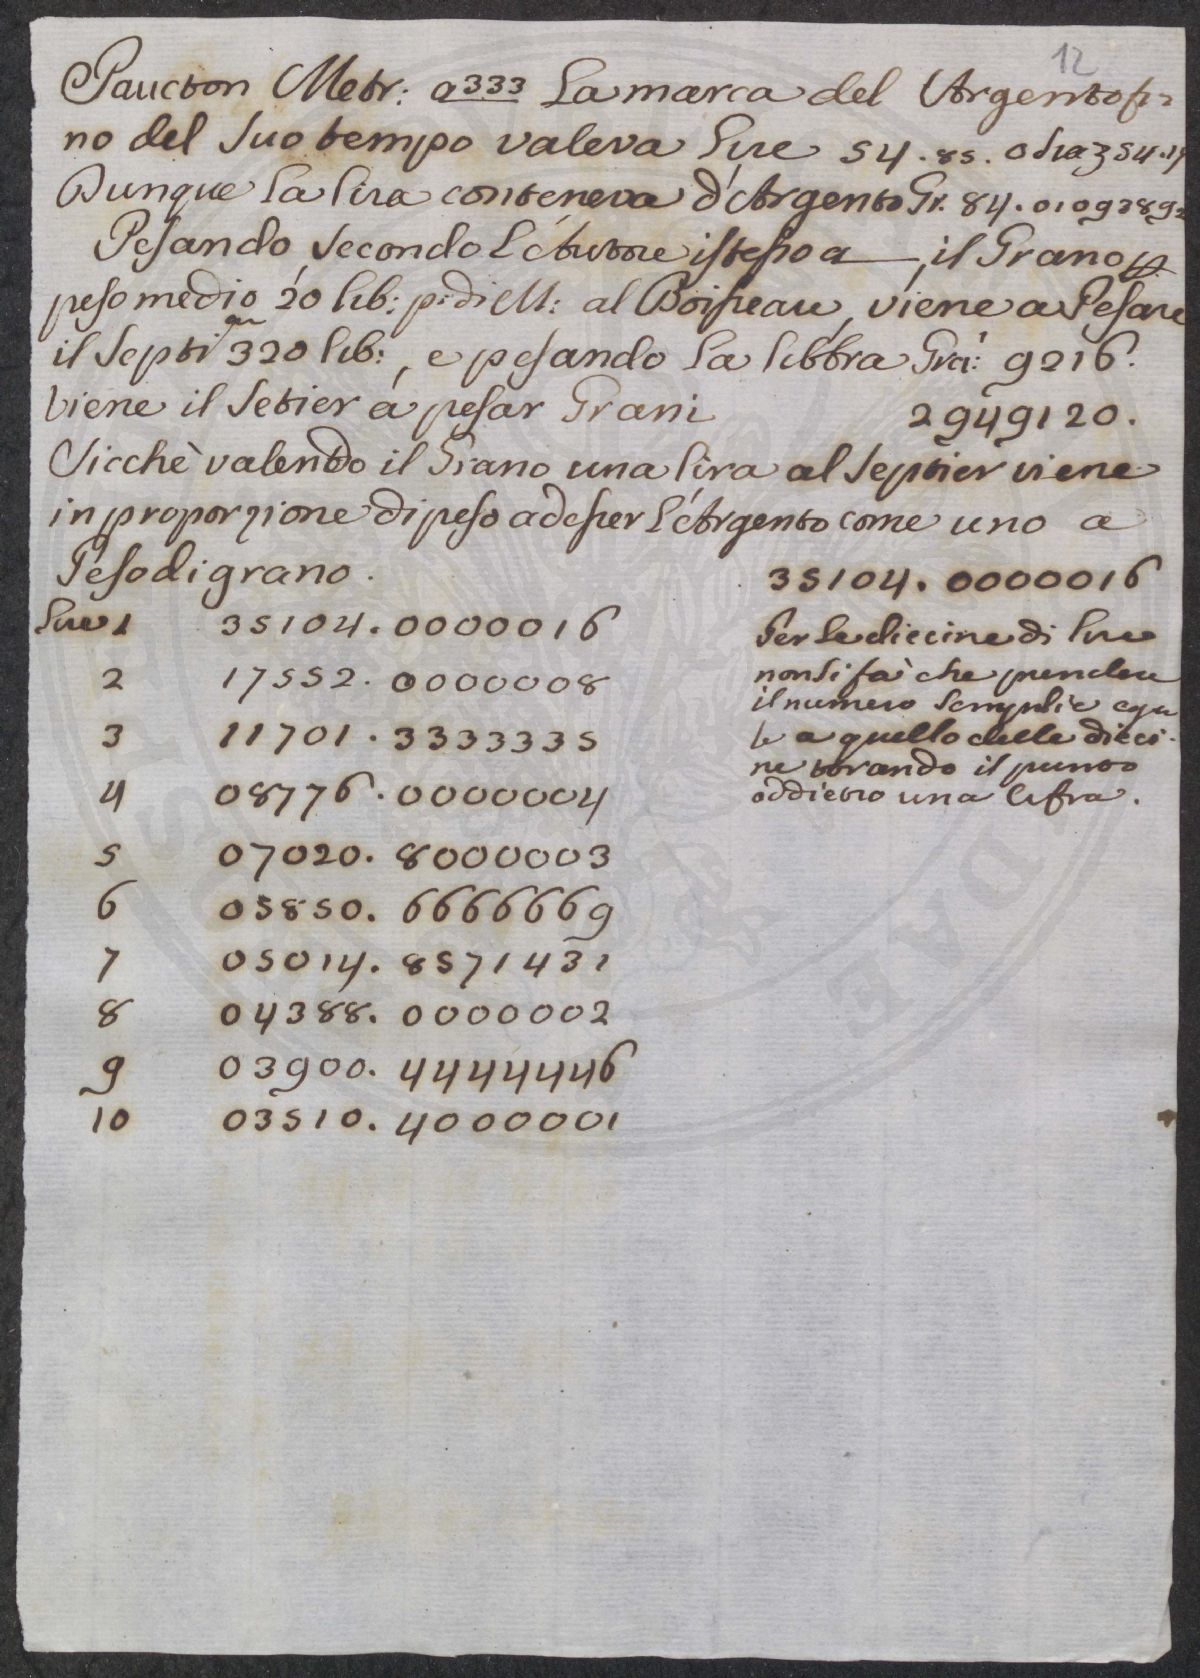 12
Paucton Metr: a 333 La marca del Argento fi=
no del suo tempo valeva lire 54.85. o sia 354.17
Dunque la lira conteneva d'Argento Gr. 84.0109389
Pesando, secondo l'Autore istesso a , il Grano p
peso medio 20 lib: p: di M: al Boisseau, viene a Pesare
il Septi 320 lib:, e pesando la libbra Gra: 9216.
viene il Setier a pesar Grani 2949120.
Sicchè valendo il Grano una lira al Septier viene
in proporzione di peso ad esser l'Argento come uno a
Peso di grano. 35104.0000016
Lire 1 35104.0000016
2 17552.0000008
3 11701.3333335
4 08776.0000004
5 07020.8000003
6 05850.6666669
7 05014.8571431
8 04388.0000002
9 03900.4444446
10 03510.4000001
Per le diecine di lire
non si fà che prendere
il numero semplic egua
le a quello delle dieci-
ne tirando il punto
addietro una cifra.